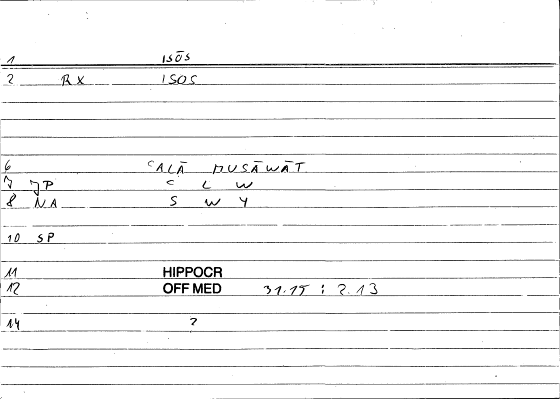 1 ISŌS
2 RX ISOS
6 ʿALĀ MUSĀWĀT
7 JP ʿ L W
8 NA S W Y
10 SP
11 HIPPOCR
12 OFF MED 31.15 : 2.13
14 ?